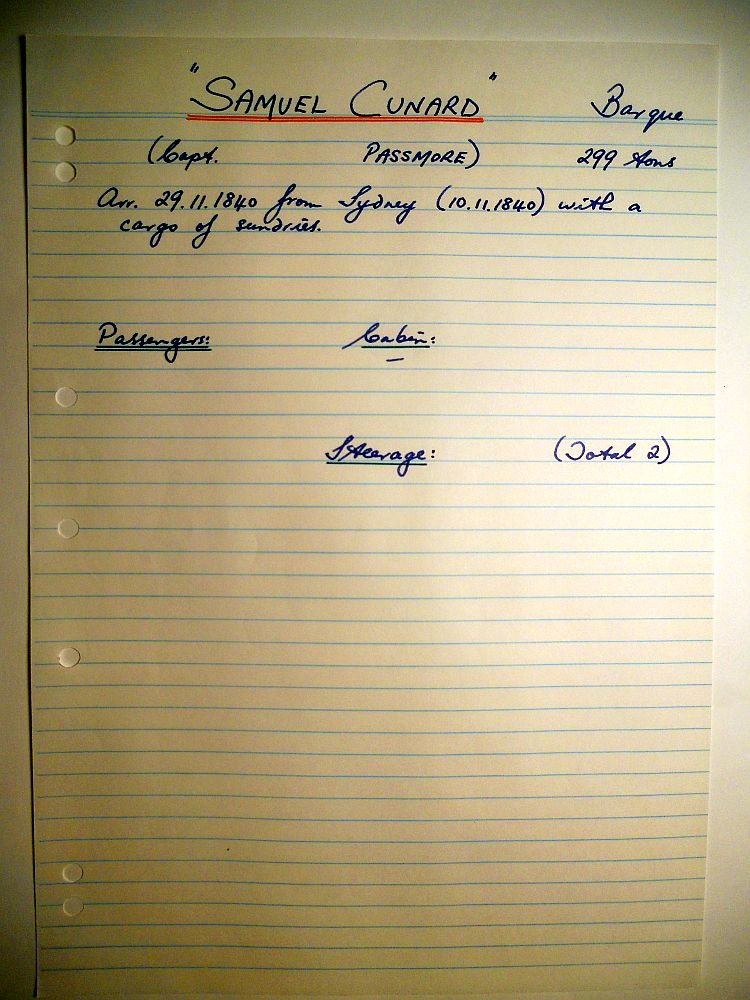 "SAMUEL CUNARD" Barque
(Capt. PASSMORE) 299 tons
Arr. 29.11.1840 from Sydney (10.11.1840) with a
cargo of sundries.
Passengers: Cabin:
—
Steerage: (Total 2)